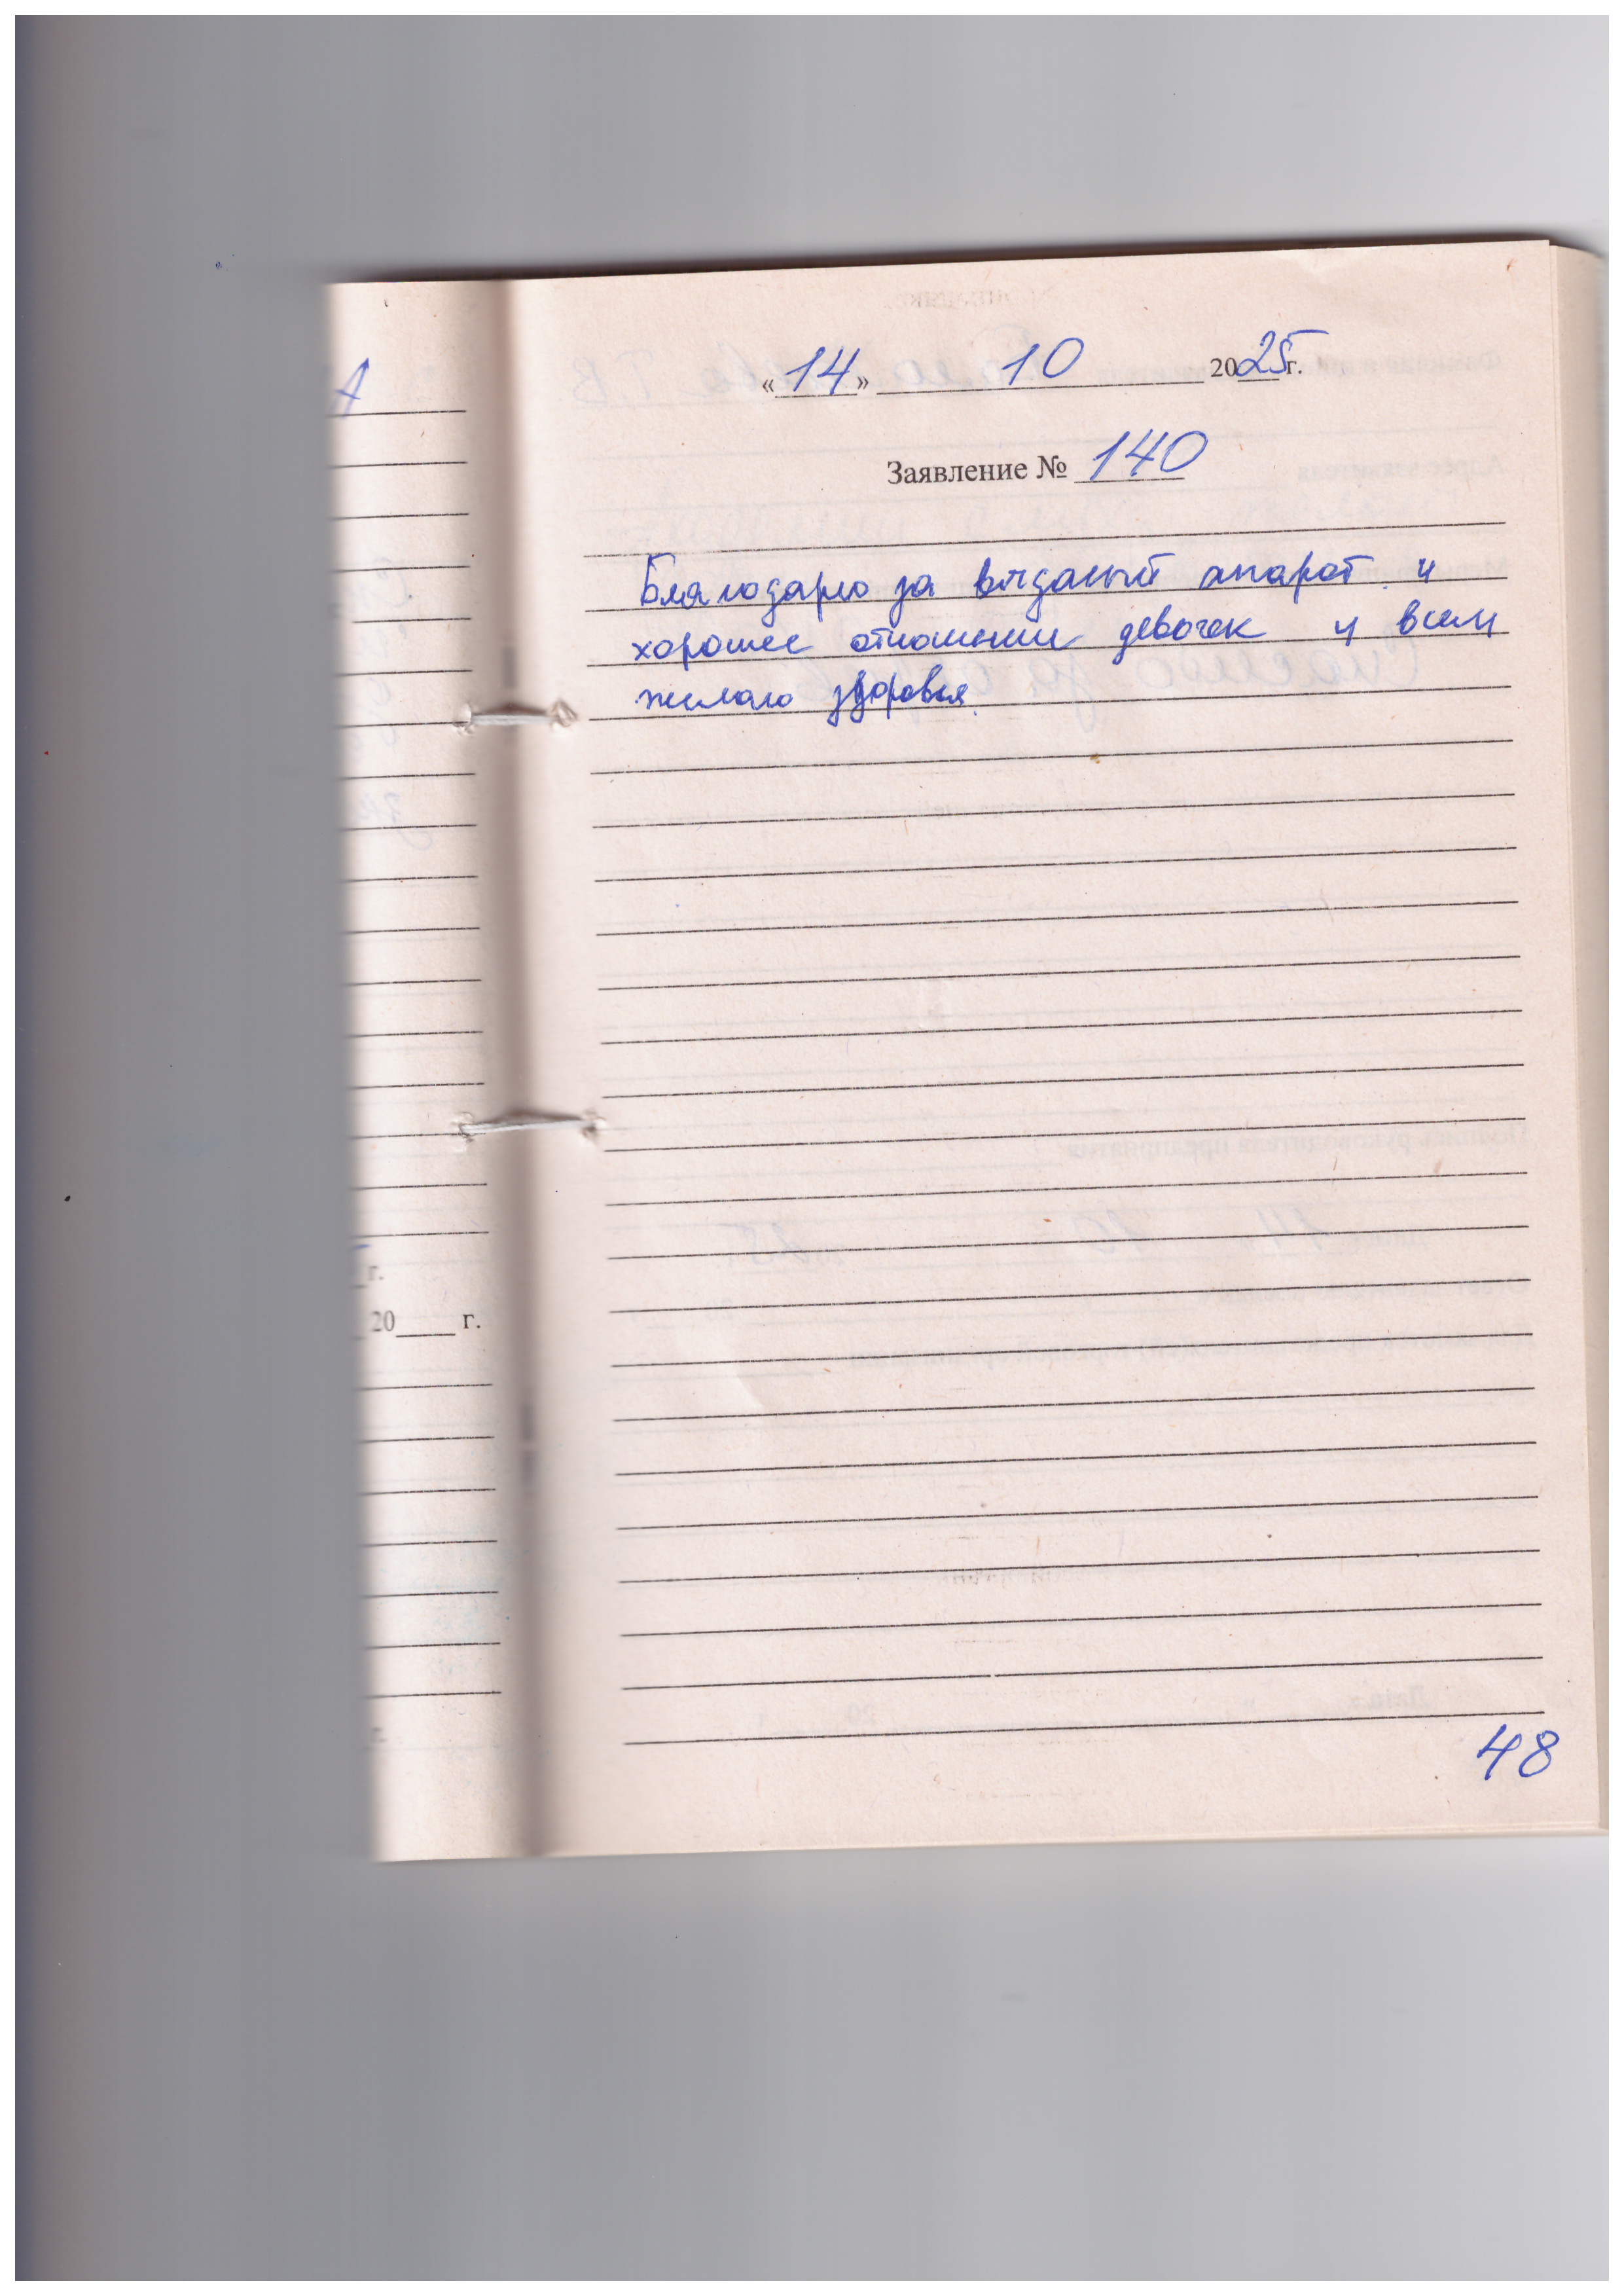 А
«14» 10 2025г.
Заявление № 140
Благодарю за выданый апарат и
хорошее отношение девочек и всем
желаю здоровья.
г.
20 г.
48